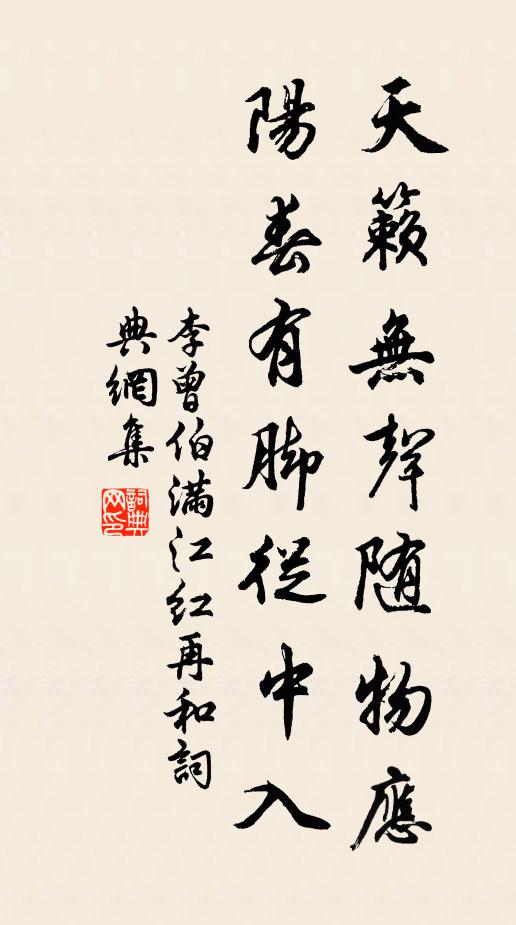 天籟無聲随物應
陽春有脚從中入
李曾伯满江红再和詞
典網集
詞典
网印